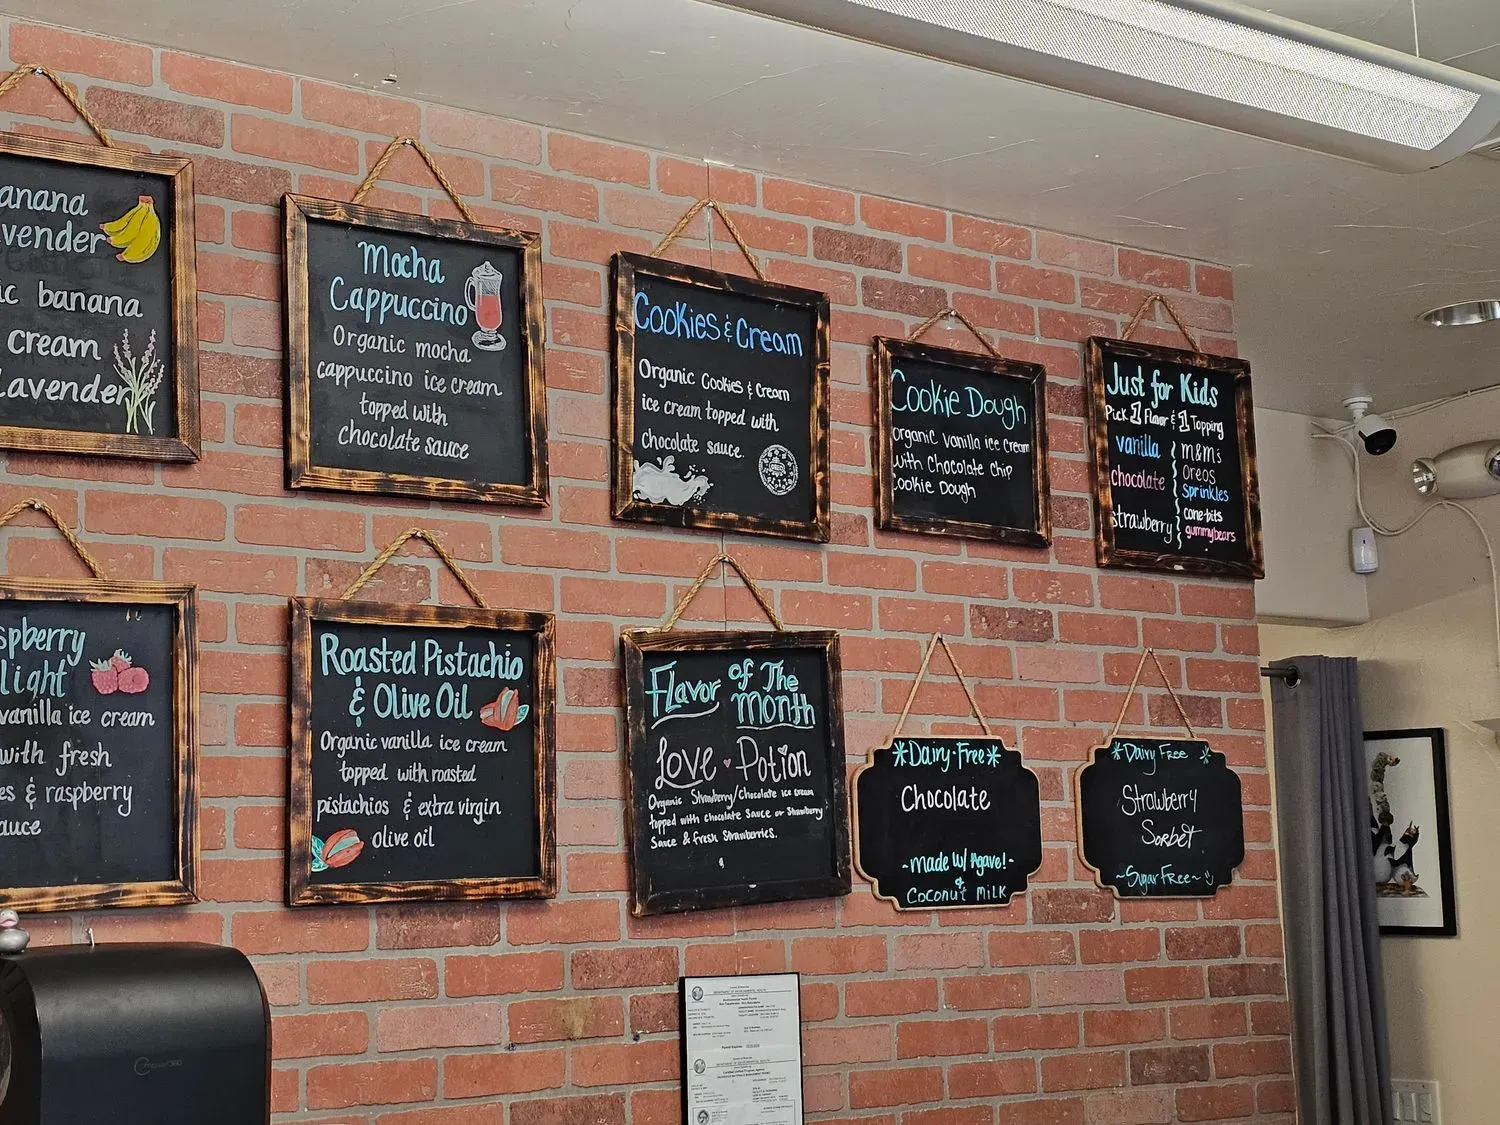 anana
vender
ic banana
cream
lavender
Mocha
Cappuccino
Organic mocha
cappuccino ice cream
topped with
chocolate sauce
Cookies & Cream
Organic Cookies & Cream
ice cream topped with
chocolate sauce.
Cookie Dough
Organic Vanilla ice cream
with Chocolate chip
Cookie Dough
Just for Kids
Pick 1 Flavor & 1 Topping
vanilla
chocolate
strawberry
m&m's
OREOS
Sprinkles
cone-bits
gummybears
spberry
light
vanilla ice cream
with fresh
es & raspberry
auce
Roasted Pistachio
& Olive Oil
Organic vanilla ice cream
topped with roasted
pistachios & extra virgin
olive oil
Flavor of The
Month
Love Potion
Organic Strawberry/chocolate ice cream
topped with chocolate Sauce or Strawberry
Sauce & Fresh Strawberries.
*Dairy-Free*
Chocolate
~made w/ Agave!~
&
Coconut Milk
*Dairy Free *
Strawberry
Sorbet
~Sugar Free~